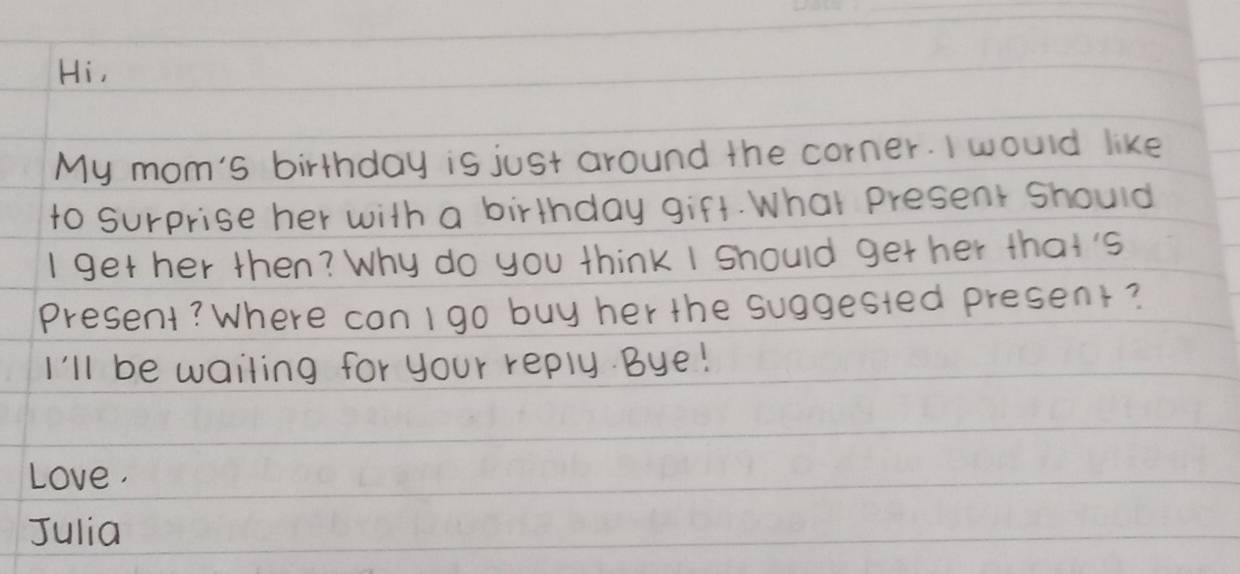 Hi,
My mom's birthday is just around the corner. I would like
to surprise her with a birthday gift. What present should
I get her then? Why do you think I should get her that's
present? Where can I go buy her the suggested present?
I'll be waiting for your reply. Bye!
Love.
Julia